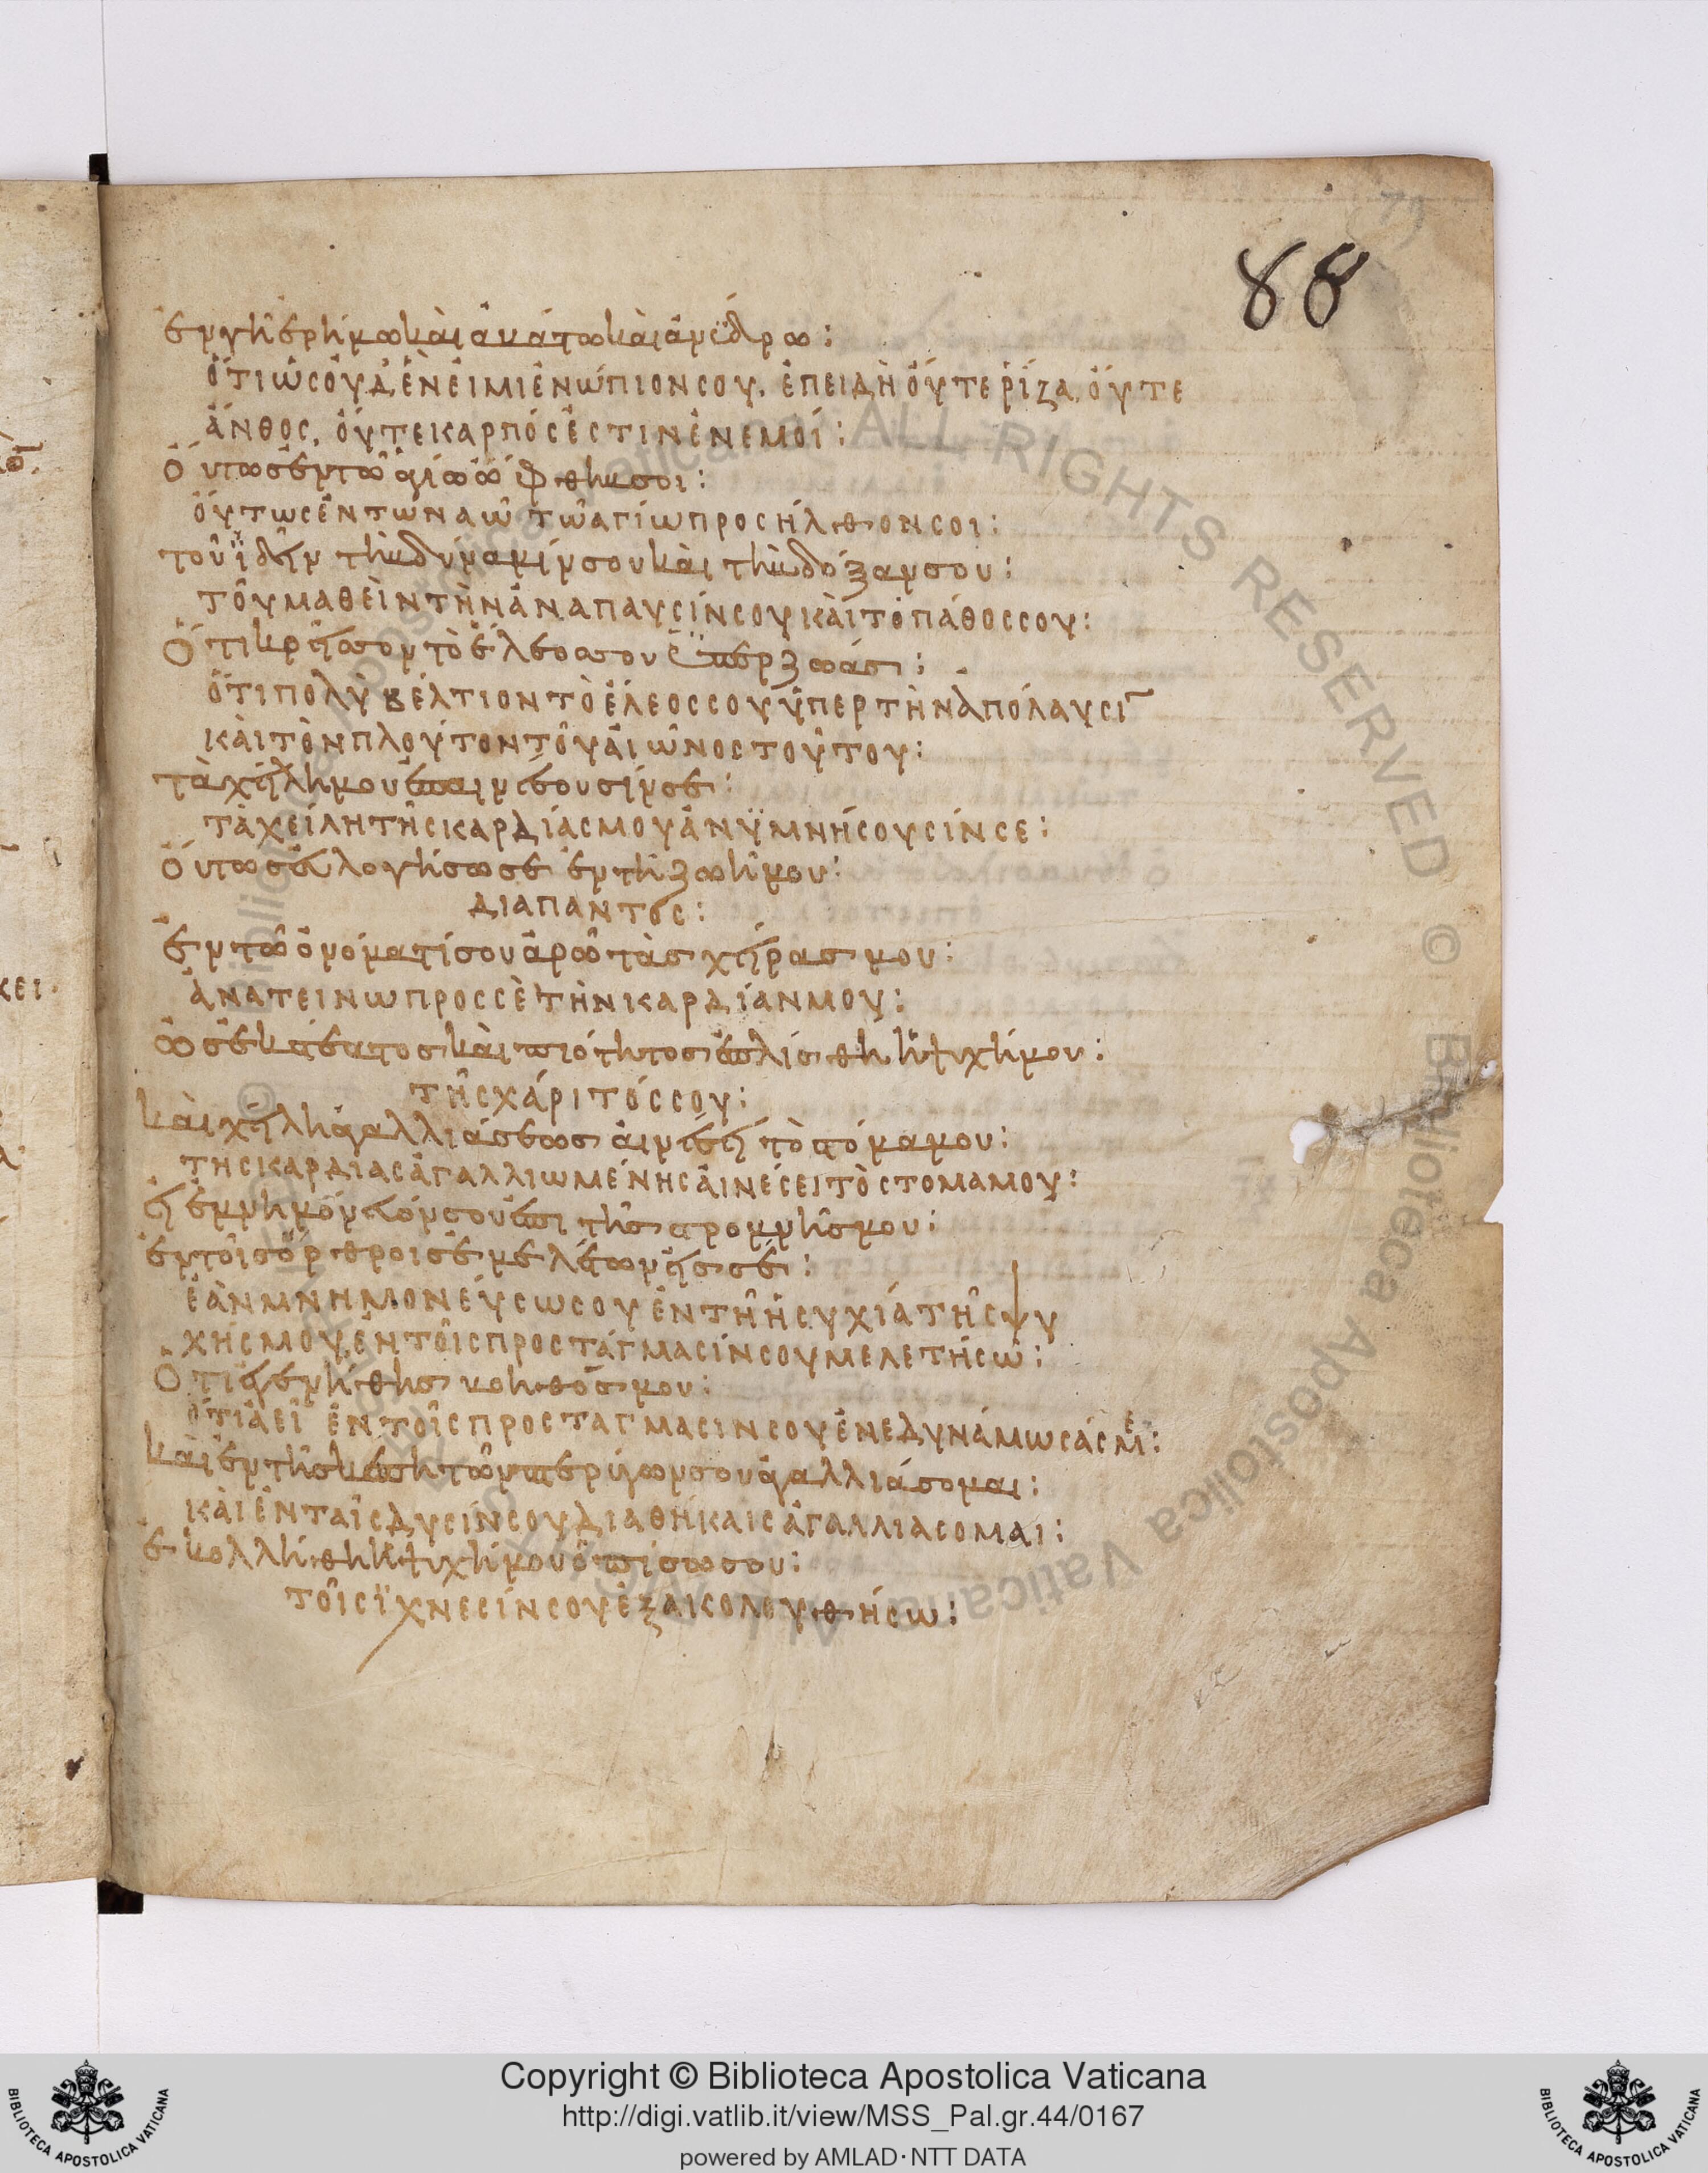 88
ἐν γῆ ἐρήμω καὶ ἀβάτω καὶ ἀνύδρω:
ὅτι ὡς οὐδέν εἰμι ἐνώπιον σου. ἐπειδὴ οὔτε ῥίζα, οὔτε
ἄνθος, οὔτε καρπός ἐστιν ἐν ἐμοί:
Οὕτως ἐν τῶ ἁγίω ὤφθην σοι:
οὕτως ἐν τῶ ναῶ τῶ ἁγίω προσήλθον σοι:
τοῦ ἰδεῖν τὴν δύναμίν σου καὶ τὴν δόξαν σου:
τοῦ μαθεῖν τὴν ἀνάπαυσίν σου καὶ τὸ πάθος σου:
Ὅτι κρεῖσσον τὸ ἔλεος σου ὑπὲρ ζωάς:
ὅτι πολὺ βέλτιον τὸ ἔλεος σου ὑπερ τὴν ἀπόλαυσι
καὶ τὸν πλοῦτον τοῦ αἰῶνος τούτου:
τὰ χείλη μου ἐπαινέσουσίν σε:
τὰ χείλη τῆς καρδίας μου ἀνϋμνήσουσίν σε:
Οὕτως εὐλογήσω σε ἐν τῆ ζωῆ μου:
διαπαντός:
ἐν τῶ ὀνόματί σου ἀρῶ τὰς χεῖρας μου:
ἀνατεινω προς σὲ τὴν καρδίαν μου:
ὡς ἐκ στέατος καὶ πιότητος ἐμπλησθῆ ἡ ψυχή μου:
τῆς χάριτός σου:
καὶ χείλη ἀγαλλιάσεως αἰνέσει τὸ στόμα μου:
της καρδιας ἀγαλλιωμένης αἰνέσει τὸ στομα μου:
εἰ ἐμνημόνευόν σου ἐπὶ τῆς στρομνῆς μου:
ἐν τοῖς ὄρθροις ἐμελέτων εἰς σέ:
ἐὰν μνημονεύσω σου ἐν τῆ ἡσυχία τῆς ψυ
χῆς μου, ἐν τοῖς προστάγμασίν σου μελετήσω:
Ὅτι ἐγενήθης βοηθός μου:
ὅτι ἀεὶ ἐν τοῖς προσταγμασιν σου ἐνεδυνάμωσάς με:
καὶ ἐν τῆ σκέπη τῶν πτερύγων σου ἀγαλλιάσομαι:
καὶ ἐν ταῖς δυσίν σου διαθήκαις ἀγαλλιασομαι:
ἐκολλήθη ἡ ψυχή μου ὀπίσω σου:
τοῖς ἴχνεσίν σου ἐξακολουθήσω:
Copyright © Biblioteca Apostolica Vaticana
http://digi.vatlib.it/view/MSS_Pal.gr.44/0167
powered by AMLAD·NTT DATA